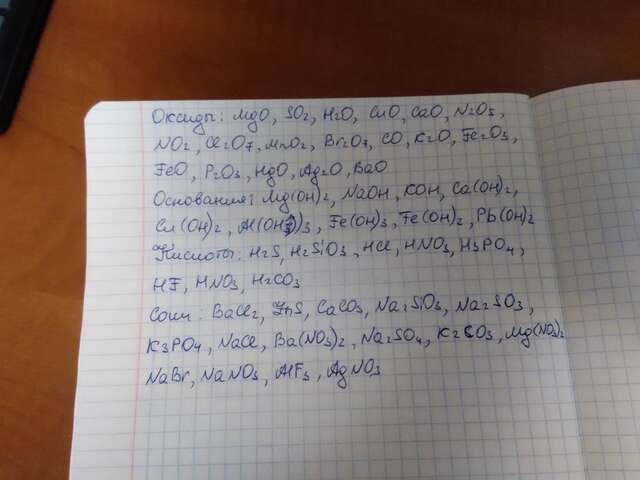 Оксиды: MgO, SO2, H2O, CuO, CaO, N2O5,
NO2, Cl2O7, MnO2, Br2O7, CO, K2O, Fe2O3,
FeO, P2O3, HgO, Ag2O, BaO
Основания: Mg(OH)2, NaOH, KOH, Ca(OH)2,
Cu(OH)2, Al(OH)3, Fe(OH)3, Fe(OH)2, Pb(OH)2
Кислоты: H2S, H2SiO3, HCl, HNO3, H3PO4,
HF, HNO3, H2CO3
Соли: BaCl2, ZnS, CaCO3, Na2SiO3, Na2SO3,
K3PO4, NaCl, Ba(NO3)2, Na2SO4, K2CO3, Mg(NO3)2
NaBr, NaNO3, AlF3, AgNO3